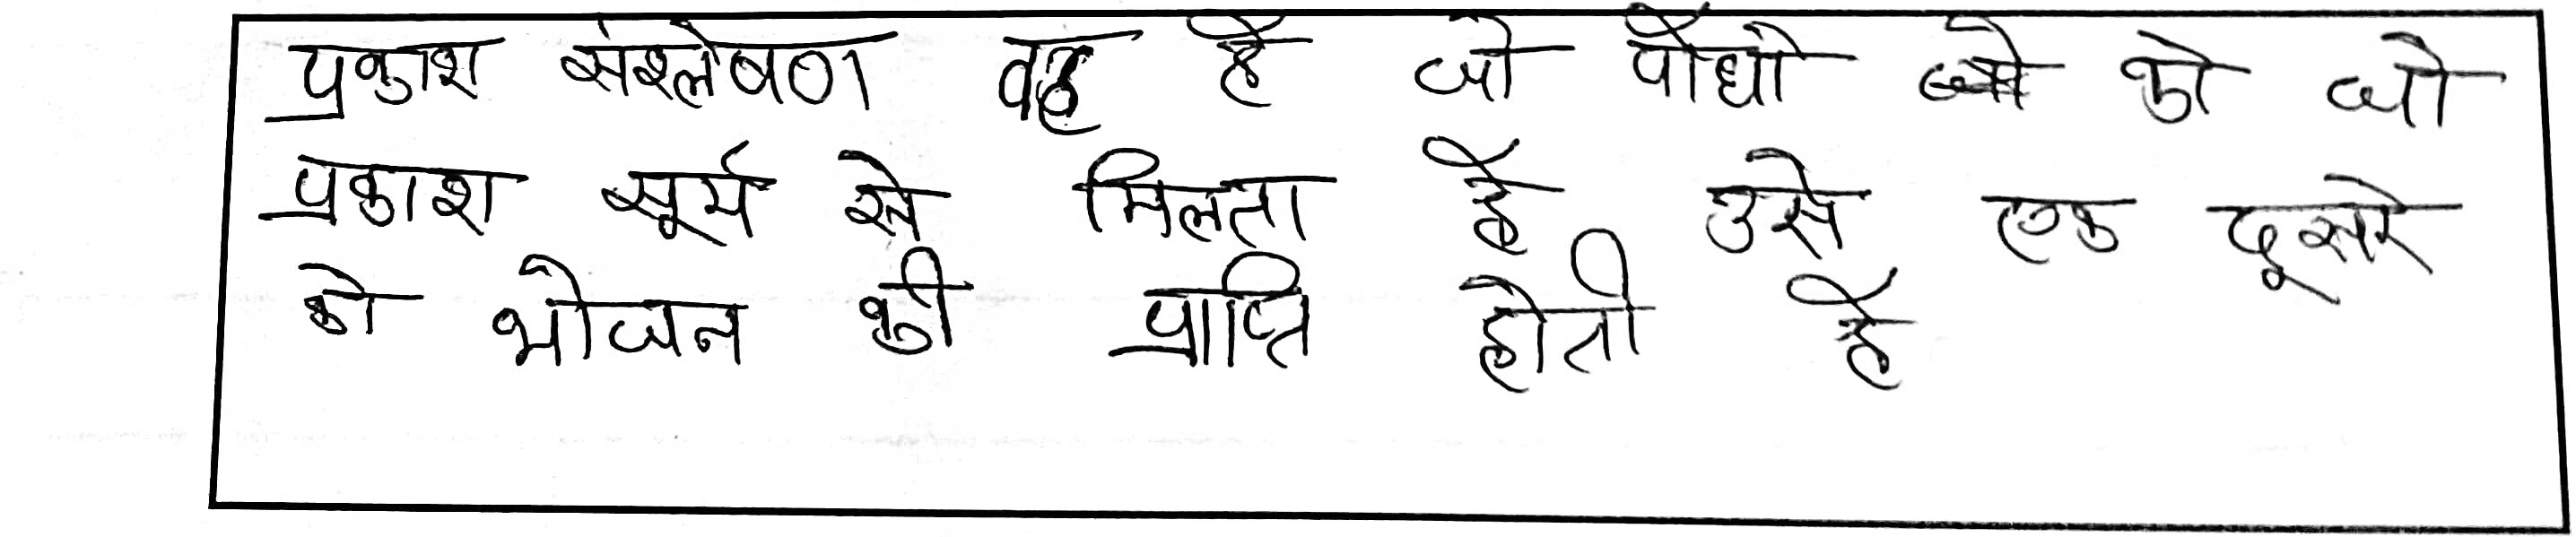 प्रकाश संश्लेषण वह है जो पौधों को जो
प्रकाश सूर्य से मिलता है उसे एक दूसरे
को भोजन की प्राप्ति होती है